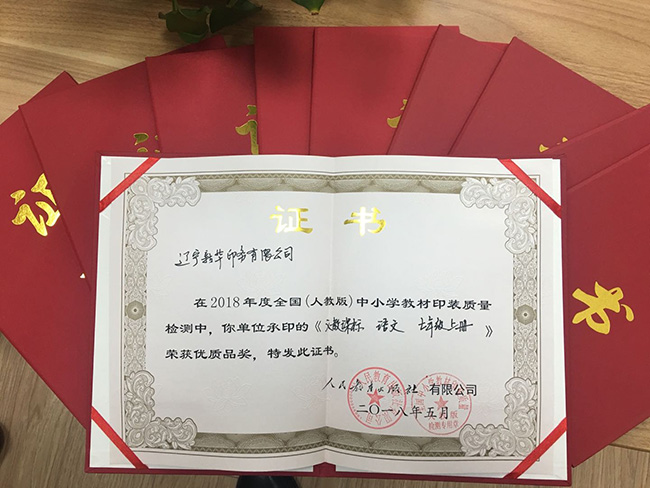 证书
辽宁新华印务有限公司
在2018年度全国(人教版)中小学教材印装质量
检测中,你单位承印的《义教课标 语文 七年级上册》
荣获优质品奖,特发此证书。
人民教育出版社 有限公司
二〇一八年五月
证
书